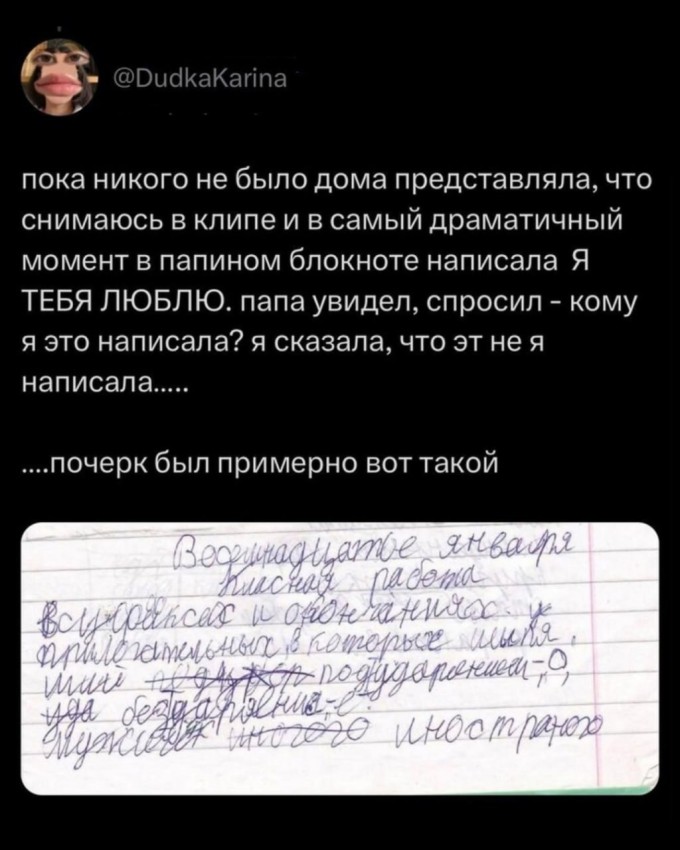 @DudkaKarina
пока никого не было дома представляла, что
снимаюсь в клипе и в самый драматичный
момент в папином блокноте написала Я
ТЕБЯ ЛЮБЛЮ. папа увидел, спросил - кому
я это написала? я сказала, что эт не я
написала.....
....почерк был примерно вот такой
января
работа
и окончаниях
прилагательных в которых
подударением-О,
иностраного